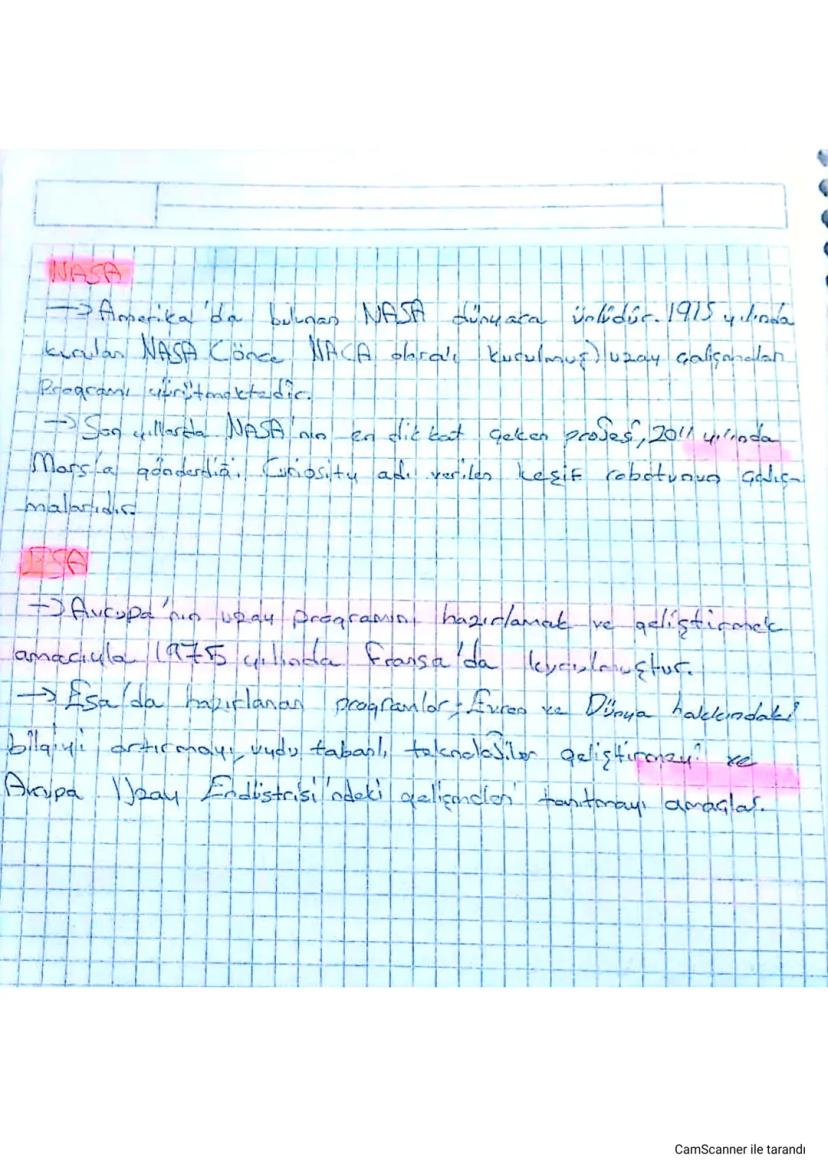 NASA
→ Amerika'da bulunan NASA dünyaca ünlüdür. 1915 yılında
kurulan NASA (önce NACA olarak kurulmuş) uzay çalışmaları
Programı yürütmektedir.
→ Son yıllarda NASA'nın en dikkat çeken projesi, 2011 yılında
Mars'a gönderdiği Curiosity adı verilen keşif robotunun çalış-
malarıdır.
ESA
→ Avrupa'nın uzay programını hazırlamak ve geliştirmek
amacıyla 1975 yılında Fransa'da kurulmuştur.
→ Esa'da hazırlanan programlar; Evren ve Dünya hakkındaki
bilgiyi artırmayı, uydu tabanlı teknolojiler geliştirmeyi ve
Avrupa Uzay Endüstrisi'ndeki gelişmeleri tanıtmayı amaçlar.
CamScanner ile tarandı